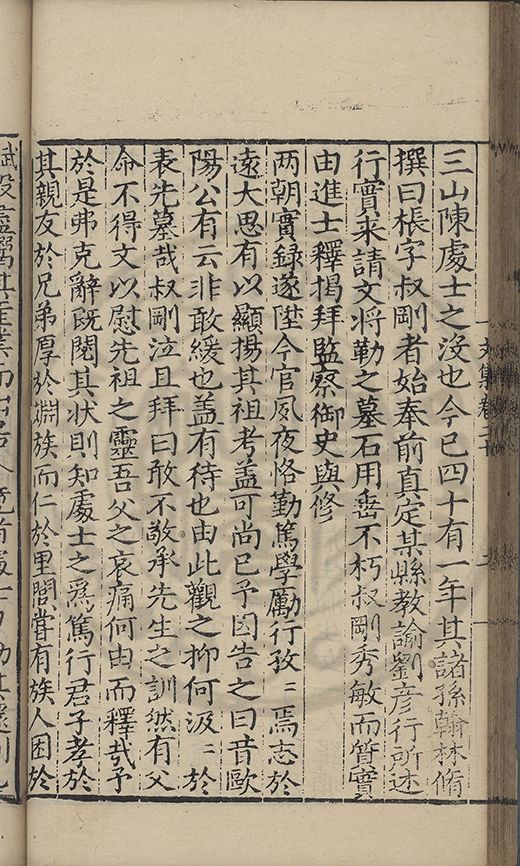 三山陳處士之沒也今已四十有一年其諸孫翰林脩
撰曰棖字叔剛者始奉前真定某縣教諭劉彦行所述
行實来請文將勒之墓石用垂不朽叔剛秀敏而質實
由進士釋褐拜監察御史與修
两朝實録遂陞今官夙夜恪勤篤學勵行孜〻焉志於
遠大思有以顯揚其祖考盖可尚已予因告之曰昔歐
陽公有云非敢緩也盖有待也由此觀之抑何汲〻於
表先墓哉叔剛泣且拜曰敢不敬承先生之訓然有父
命不得文以慰先祖之靈吾父之哀痛何由而釋㢤予
於是弗克辭既閱其状則知處士之爲篤行君子孝於
其親友於兄弟厚於婣族而仁於里閭甞有族人困於
文集卷二十